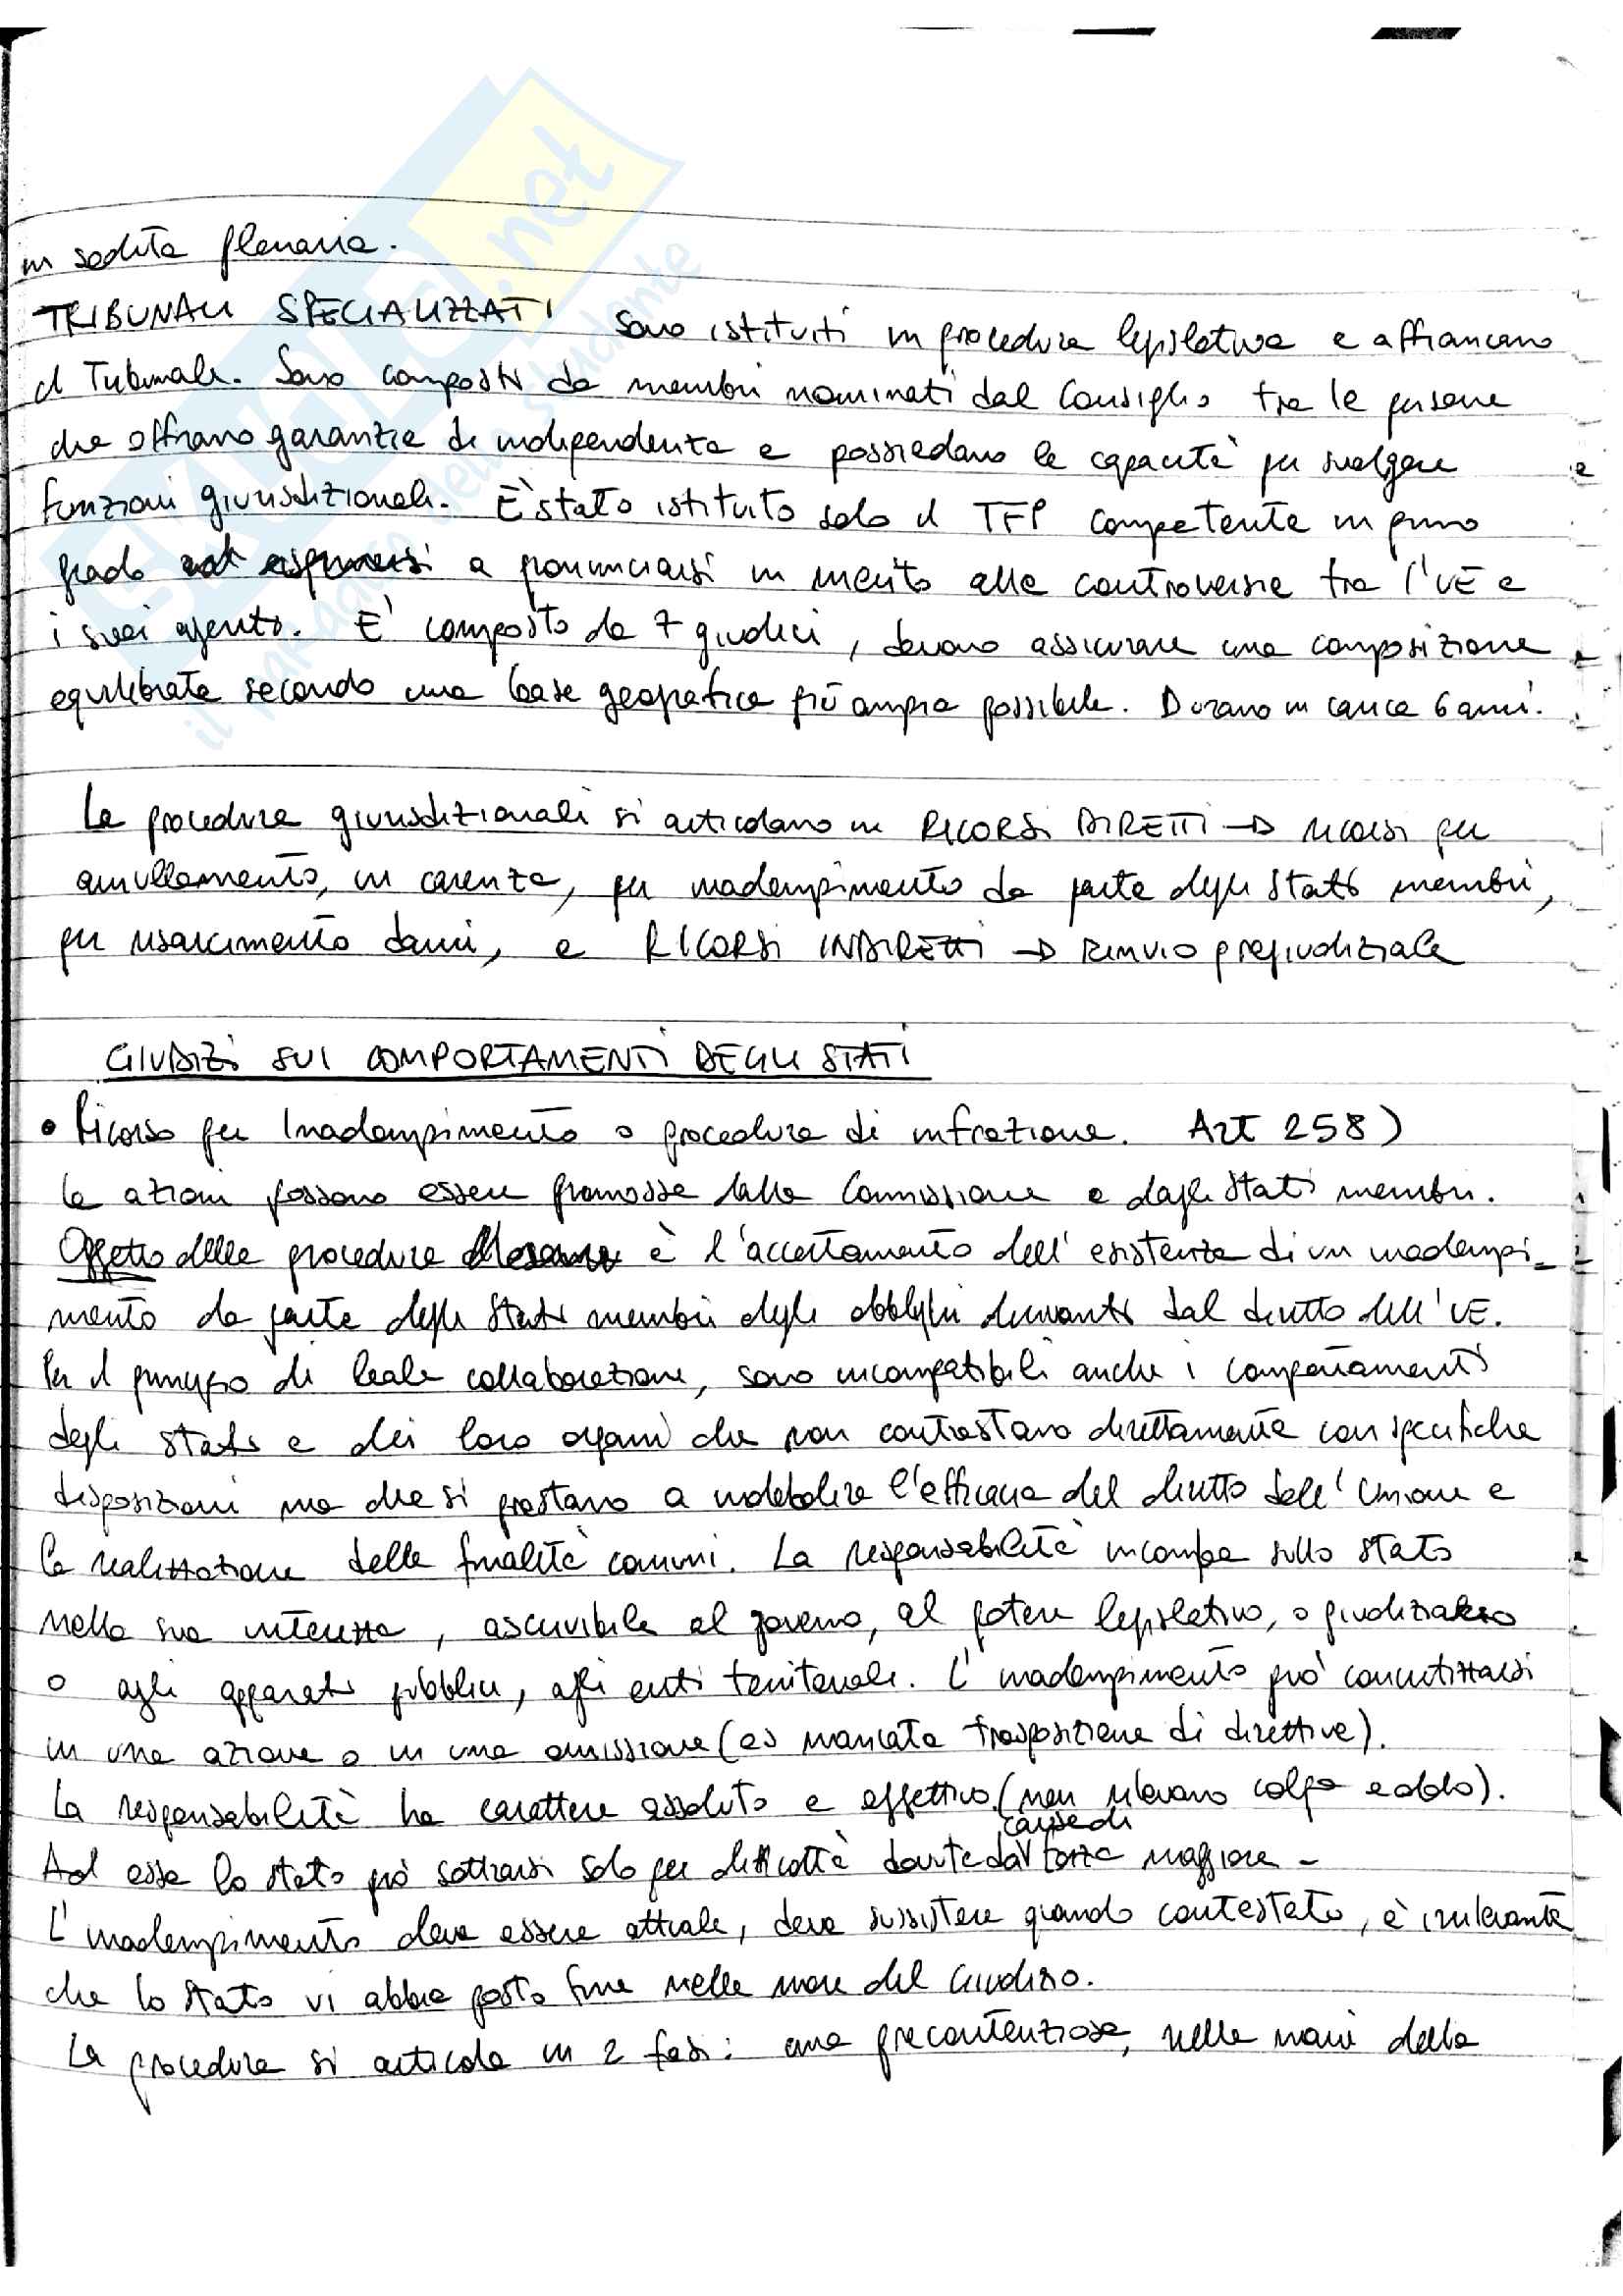 in seduta plenaria.
TRIBUNALI SPECIALIZZATI sono istituiti in procedura legislativa e affiancano
il Tribunale. Sono composti da membri nominati dal Consiglio tra le persone
che offrano garanzie di indipendenza e possiedano le capacità per svolgere
funzioni giurisdizionali. È stato istituito solo il TFP competente in primo
grado a pronunciarsi in merito alle controversie tra l'UE e
i suoi agenti. E' composto da 7 giudici, devono assicurare una composizione
equilibrata secondo una base geografica più ampia possibile. Durano in carica 6 anni.
Le procedure giurisdizionali si articolano in RICORSI DIRETTI → ricorsi per
annullamento, in carenza, per inadempimento da parte degli Stati membri,
per risarcimento danni, e RICORSI INDIRETTI → Rinvio pregiudiziale
GIUDIZI SUI COMPORTAMENTI DEGLI STATI
• Ricorso per Inadempimento o procedura di infrazione. Art 258)
Le azioni possono essere promosse dalla Commissione e dagli Stati membri.
Oggetto della procedura è l'accertamento dell'esistenza di un inadempi-
mento da parte degli Stati membri degli obblighi derivanti dal diritto dell'UE.
Per il principio di leale collaborazione, sono incompatibili anche i comportamenti
degli stati e dei loro organi che non contrastano direttamente con specifiche
disposizioni ma che si prestano a indebolire l'efficacia del diritto dell'Unione e
la realizzazione delle finalità comuni. La responsabilità incombe sullo stato
nella sua interezza, ascrivibile al governo, al potere legislativo, o giudiziario
o agli apparati pubblici, agli enti territoriali. L'inadempimento può concretizzarsi
in una azione o in una omissione (es mancata trasposizione di direttive).
La responsabilità ha carattere assoluto e oggettivo (non rilevano colpa e dolo).
Ad essa lo stato può sottrarsi solo per difficoltà dovute da cause di forza maggiore -
L'inadempimento deve essere attuale, deve sussistere quando contestato, è irrilevante
che lo stato vi abbia posto fine nelle more del Giudizio.
La procedura si articola in 2 fasi: una precontenziosa, nelle mani della
SKUOLA.net
il paradiso dello studente